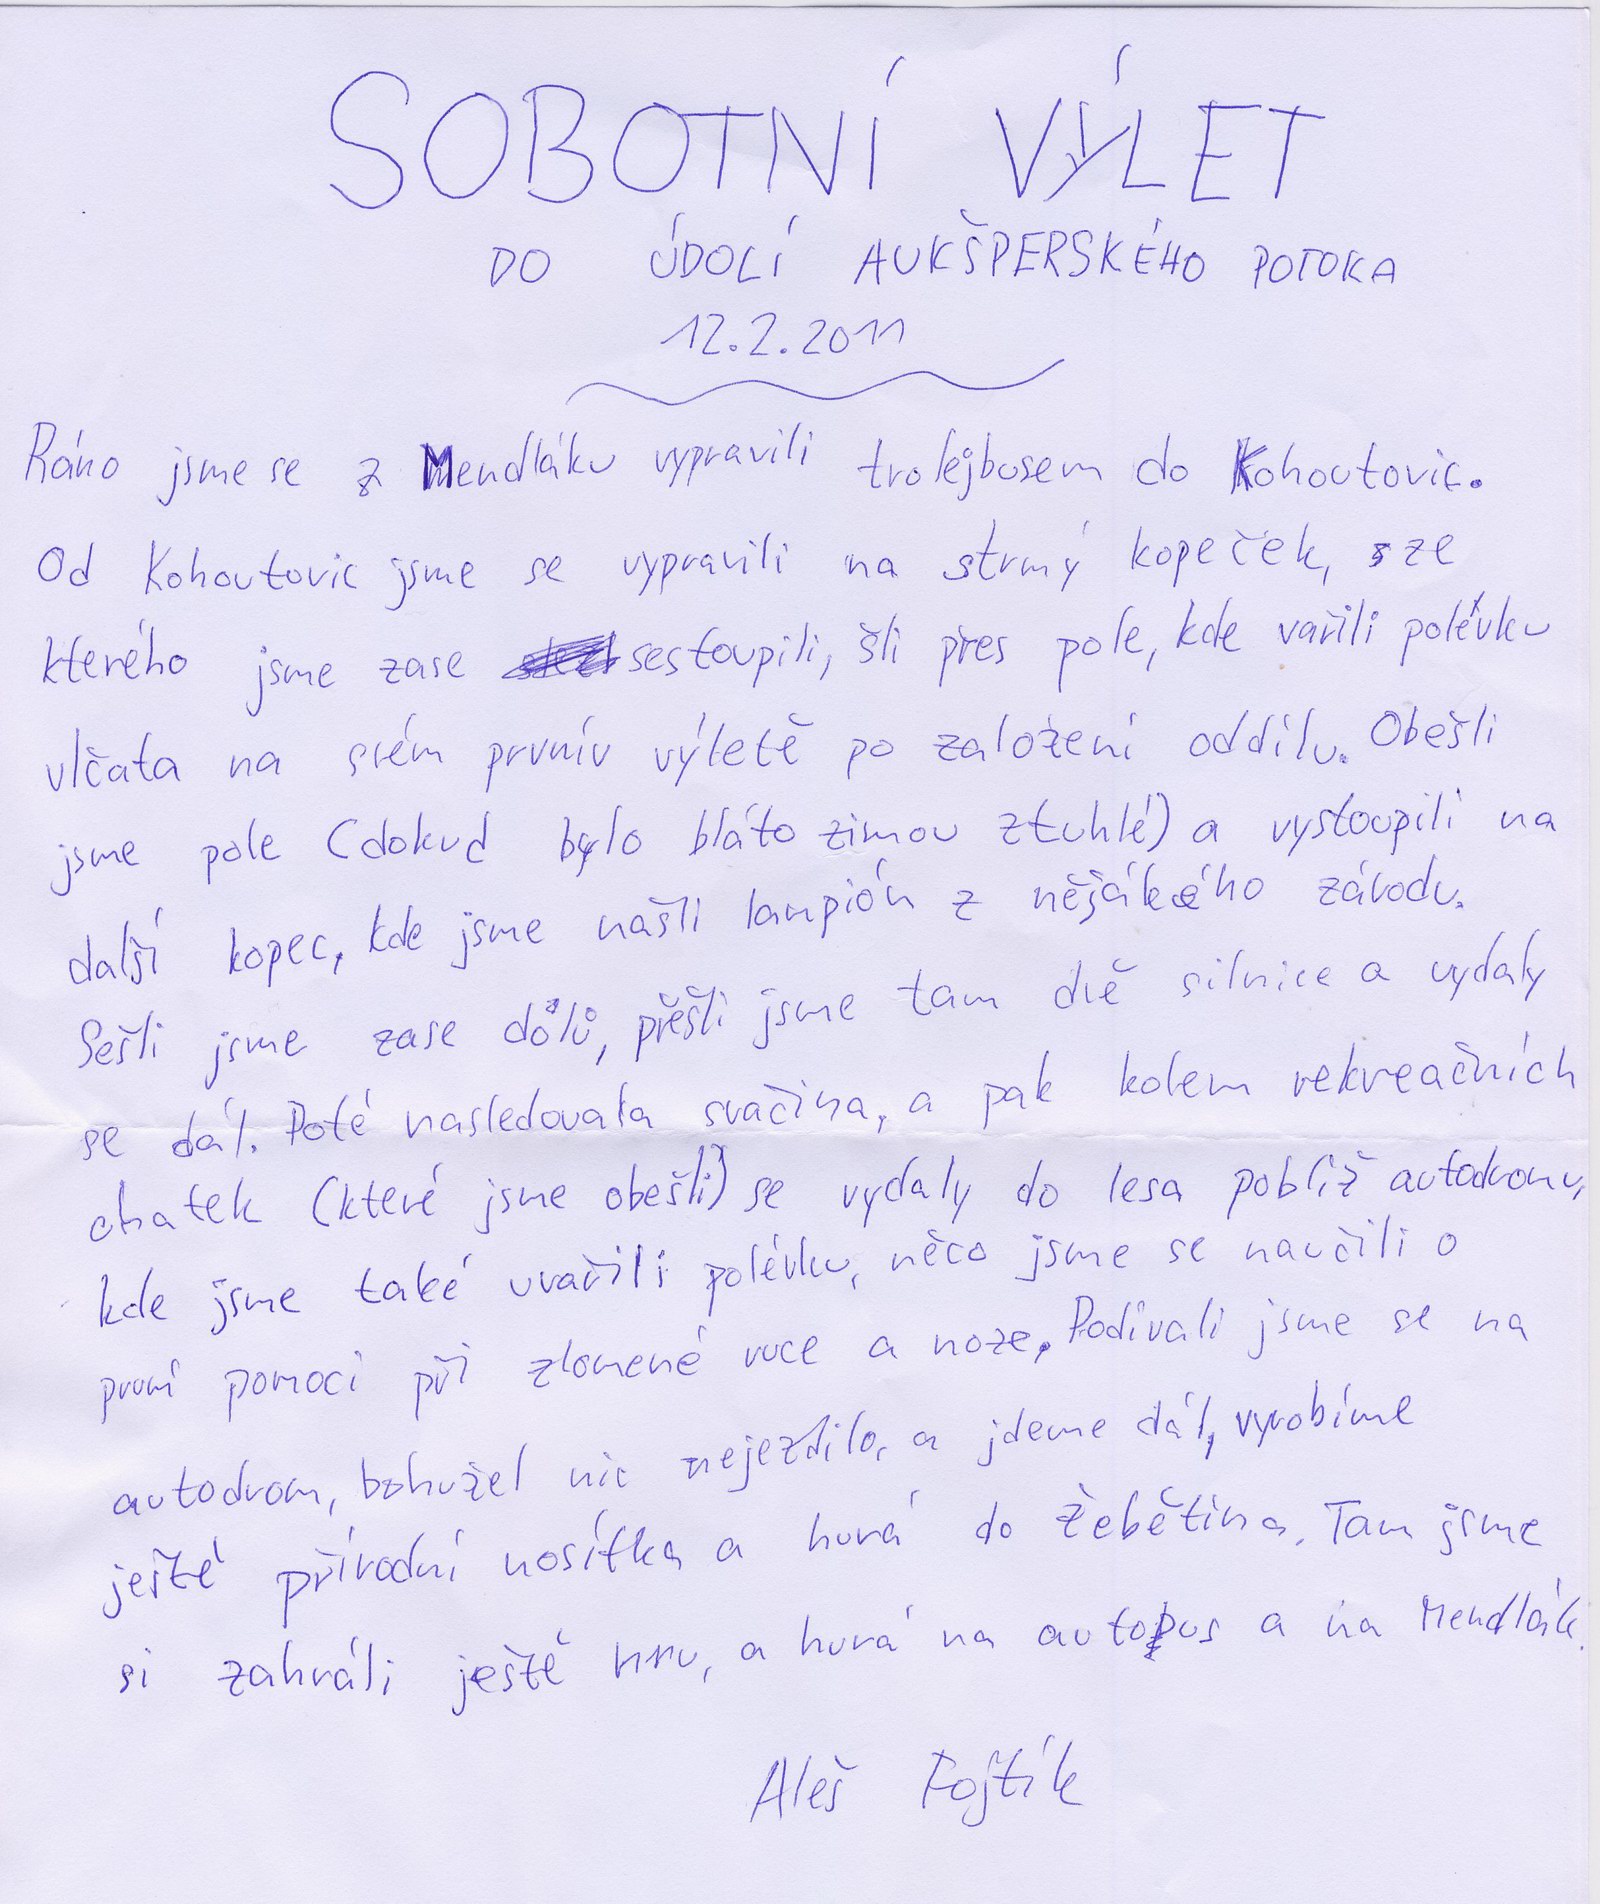 SOBOTNÍ VÝLET
DO ÚDOLÍ AUKŠPERSKÉHO POTOKA
12.2.2011
Ráno jsme se z Mendláku vypravili trolejbusem do Kohoutovic.
Od Kohoutovic jsme se vypravili na strmý kopeček, ze
kterého jsme zase sestoupili, šli přes pole, kde vařili polévku
vlčata na svém prvním výletě po založení oddílu. Obešli
jsme pole (dokud bylo bláto zimou ztuhlé) a vystoupili na
další kopec, kde jsme našli lampión z nějákého závodu.
Sešli jsme zase dolů, přešli jsme tam dvě silnice a vydaly
se dál. Poté nasledovala svačina, a pak kolem rekreačních
chatek (které jsme obešli) se vydaly do lesa poblíž autodromu,
kde jsme také uvařili polévku, něco jsme se naučili o
první pomoci při zlomené ruce a noze. Podívali jsme se na
autodrom, bohužel nic nejezdilo, a jdeme dál, vyrobíme
ještě přírodní nosítka a hurá do Žebětína. Tam jsme
si zahráli ještě hru, a hurá na autobus a na Mendlák.
Aleš Fojtík